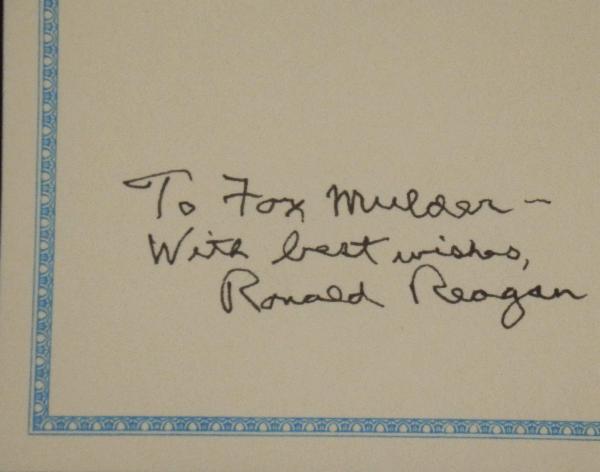 To Fox Mulder –
With best wishes,
Ronald Reagan